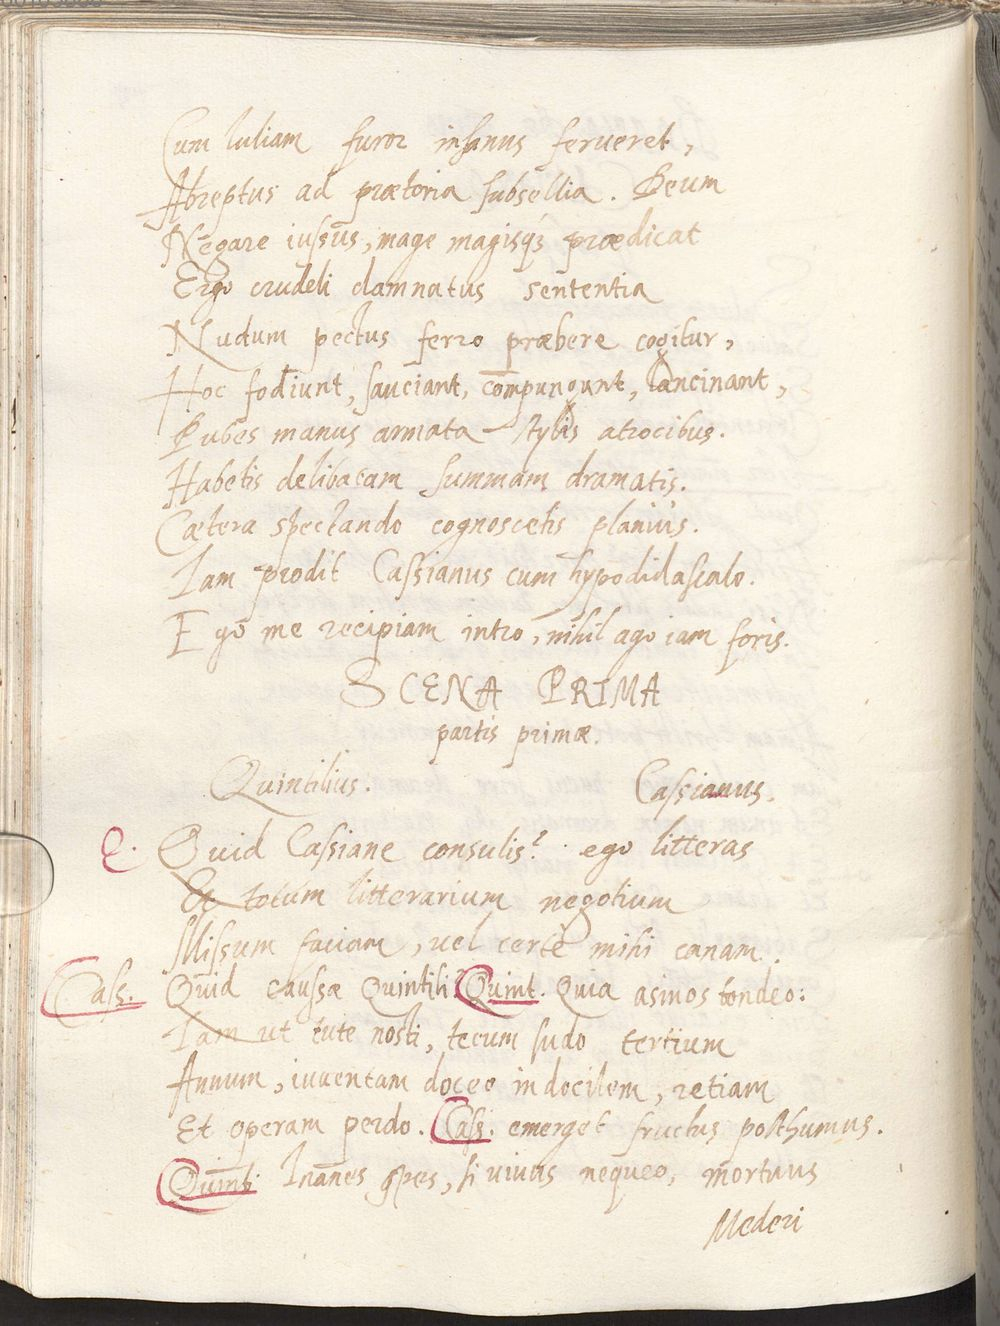 Cum Iuliam furor insanus ferueret,
Abreptus ad prætoria subsellia. Deum
Negare iussus, mage magisq́ prædicat
Ergo crudeli damnatus sententia
Nudum pectus ferro præbere cogitur,
Hoc fodiunt, sauciant, compungunt, lancinant,
Pubes manus armata stylis atrocibus.
Habetis delibatam summam dramatis.
Cætera spectando cognoscetis planius.
Iam prodit Cassianus cum hypodidascalo.
Ego me recipiam intro, nihil ago iam foris.
SCENA PRIMA
partis primæ.
Quintilius. Cassianus.
Q. Quid Cassiane consulis? ego litteras
Et totum litterarium negotium
Missum faciam, vel certè mihi canam.
Cass. Quid caussæ Quintili? Quint. Quia asinos tondeo:
Iam ut tute nosti, tecum sudo tertium
Annum, iuventam doceo indocilem, retiam
Et operam perdo. Cass. emerget fructus posthumus.
Quint. Inanes spes, si vivus nequeo, mortuus
Mederi